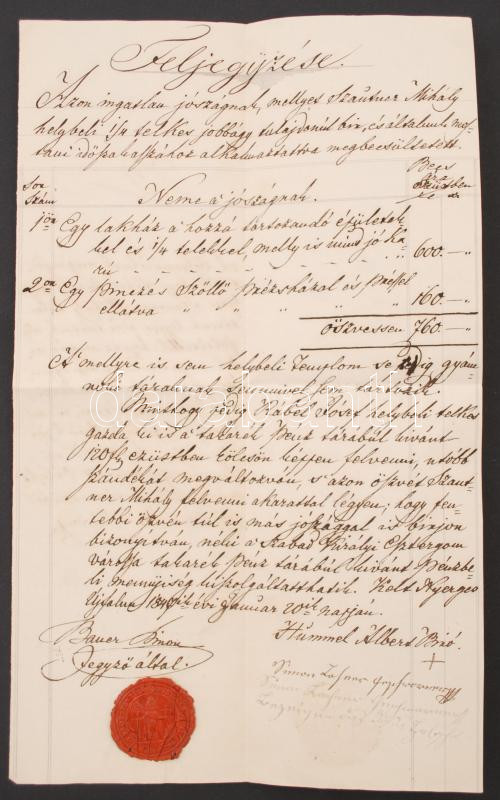 Feljegyzése.
Azon ingatlan jószágnak, mellyet Szautner Mihály
helybeli 1/4 telkes jobbágy tulajdonul bir, és általunk mos-
tani időszakaszhoz alkalmaztattva megbecsültetett.
Becs
ára
Ezüstben
Sor
Szám
Neme a jószágnak.
1ör Egy lakház a hozzá tartozandó épületek-
kel és 1/4 telekkel, melly is mind jó ka-
rú " 600.— "
2or Egy pinczés Szöllő Présházzal és Préssel
ellátva " " " " 160.— "
öszvessen 760.— "
A' mellyre is sem helybeli Templom se pedig gyám-
tárának semmivel sem tartozik.
Minthogy pedig Kábel Jósef helybeli telkes
gazda ki is a takarék Pénz tárábúl kivánt
120 ft ezüstben kölcsön képen felvenni, utóbb
szándékát megváltozván, s azon öszvet Szaut-
ner Mihály felvenni akarattal légyen; hogy fen-
tebbi öszvén túl is más jószággal is birjon
bizonyitván, neki a Szabad Királyi Esztergom
várossa takarék Pénz tárábúl kivánt Pénzbe-
li mennyiség kiszolgáltatthatik. Kelt Nyerges
Ujfalun évi Januar 20ik napján.
Bauer Simon
Jegyző által.
Hummel Albert Biró.
+
Simon Lahner
darabanth